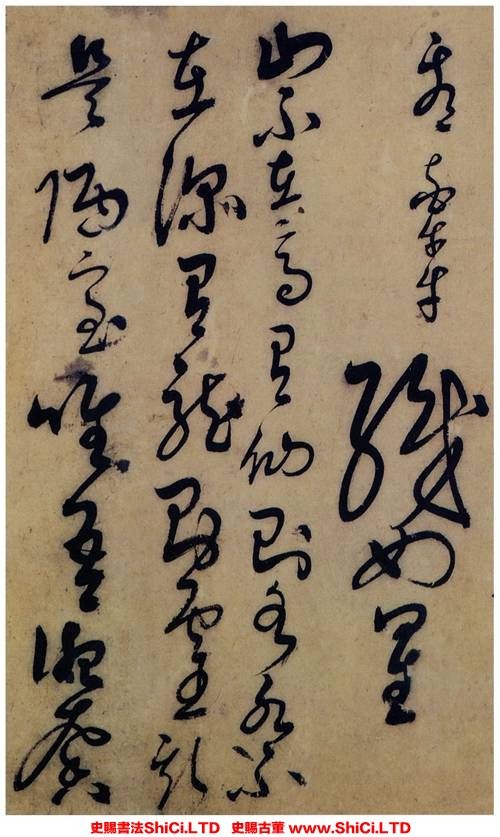 看牽牛織女星
山不在高有仙則名水不
在深有龍則靈斯
是陋室唯吾德馨
史賜書法ShiCi.LTD 史賜古董 www.ShiCi.LTD